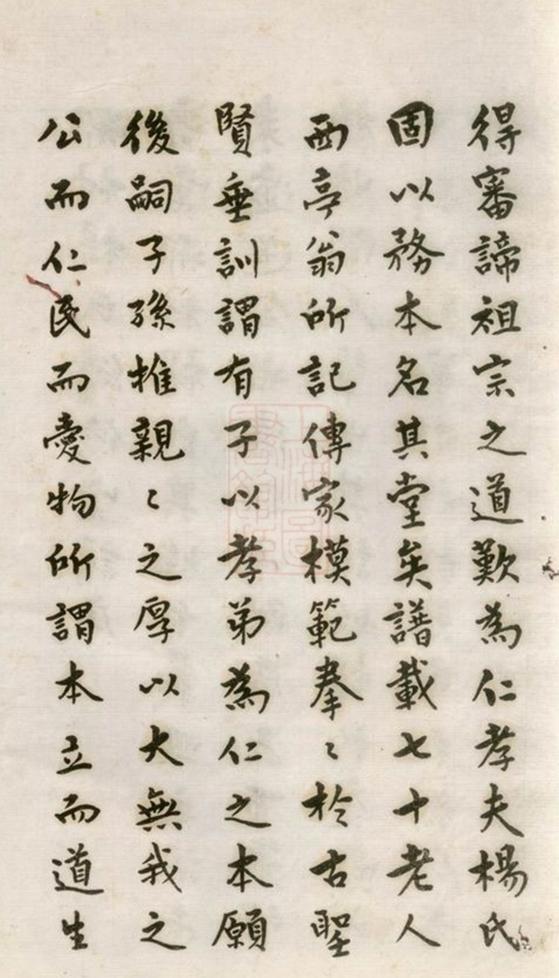 得審諦祖宗之道歟為仁孝夫楊氏
固以務本名其堂矣譜載七十老人
西亭翁所記傳家模範拳〻於古聖
賢垂訓謂有子以孝弟為仁之本願
後嗣子孫推親〻之厚以大無我之
公而仁民而愛物所謂本立而道生